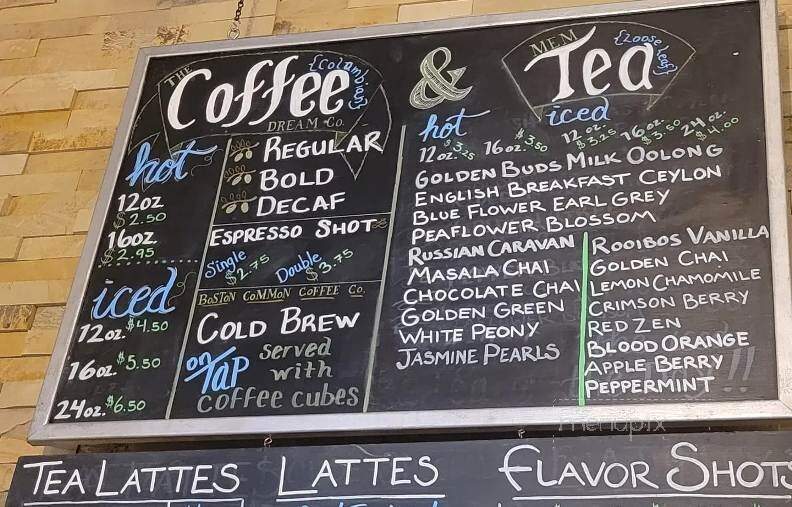 THE
Coffee
{Colombian}
DREAM Co.
hot
12oz
$2.50
16oz
$2.95
iced
12oz. $4.50
16oz. $5.50
24oz. $6.50
REGULAR
BOLD
DECAF
ESPRESSO SHOT
Single $2.75
Double $3.75
BOSTON COMMON COFFEE CO.
COLD BREW
on TAP
served
with
coffee cubes
&
MEM
Tea
{Loose Leaf}
hot
12oz. $3.25 16oz. $3.50
iced
12oz. $3.25 16oz. $3.50 24oz. $4.00
GOLDEN BUDS MILK OOLONG
ENGLISH BREAKFAST CEYLON
BLUE FLOWER EARL GREY
PEAFLOWER BLOSSOM
RUSSIAN CARAVAN
MASALA CHAI
CHOCOLATE CHAI
GOLDEN GREEN
WHITE PEONY
JASMINE PEARLS
ROOIBOS VANILLA
GOLDEN CHAI
LEMON CHAMOMILE
CRIMSON BERRY
RED ZEN
BLOOD ORANGE
APPLE BERRY
PEPPERMINT
menupix
TEA LATTES LATTES FLAVOR SHOTS